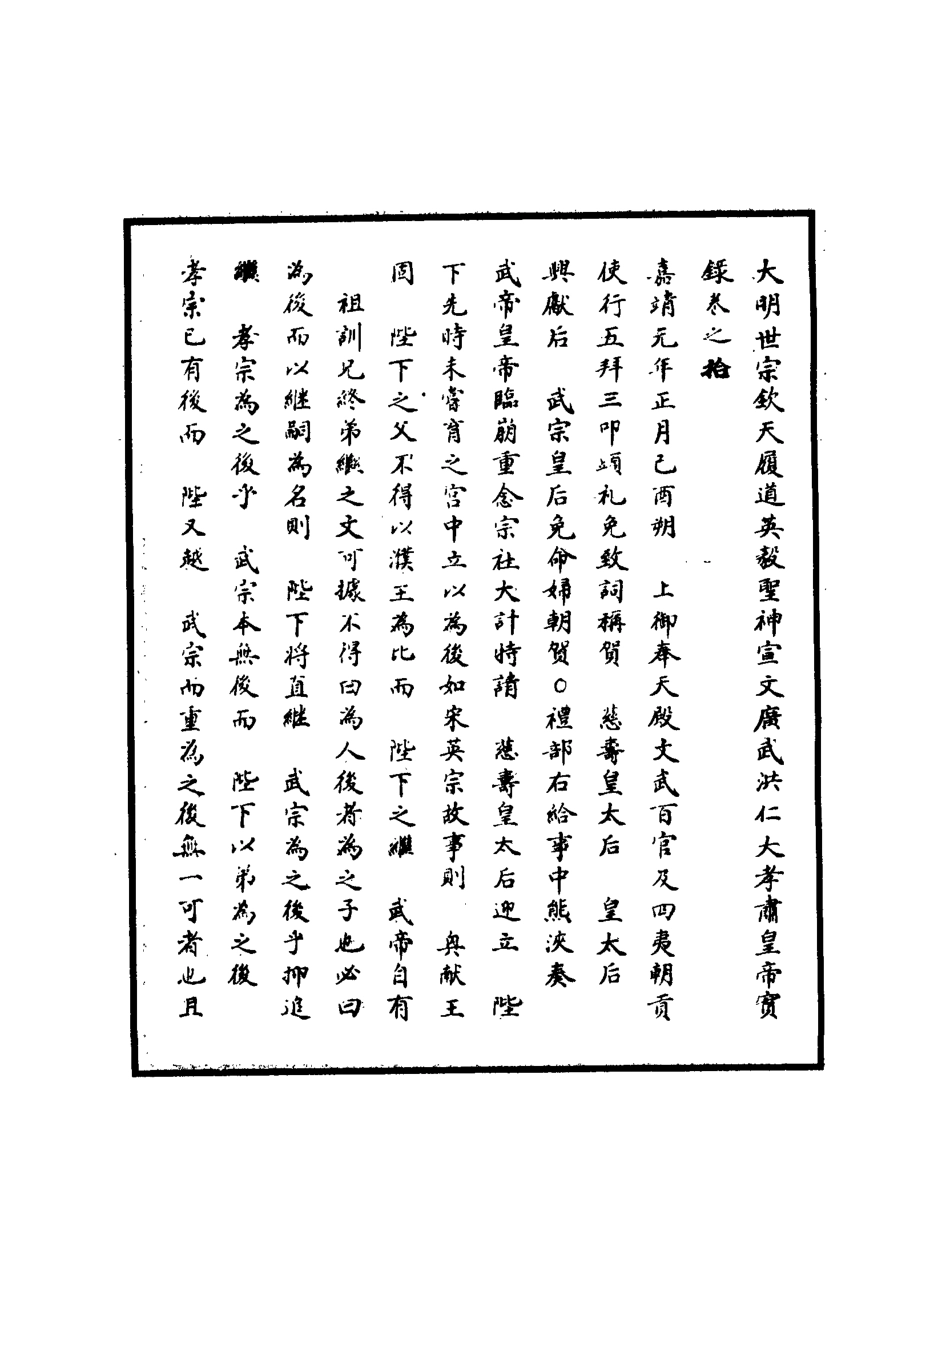 大明世宗欽天履道英毅聖神宣文廣武洪仁大孝肅皇帝實
錄卷之拾
嘉靖元年正月己酉朔　上御奉天殿文武百官及四夷朝貢
使行五拜三叩頭礼免致詞稱賀　慈壽皇太后　皇太后
興獻后　武宗皇后免命婦朝贺○禮部右給事中熊浹奏
武帝皇帝臨崩重念宗社大計時請　慈壽皇太后迎立　陛
下先時未嘗育之宮中立以為後如宋英宗故事則　興献王
固　陛下之父不得以濮王為比而　陛下之繼　武帝自有
祖訓兄終弟繼之文可據不得曰為人後者為之子也必曰
為後而以継嗣為名則　陛下将直継　武宗為之後乎抑追
繼　孝宗為之後乎　武宗本無後而　陛下以弟為之後
孝宗已有後而　陛又越　武宗而重為之後無一可者也且